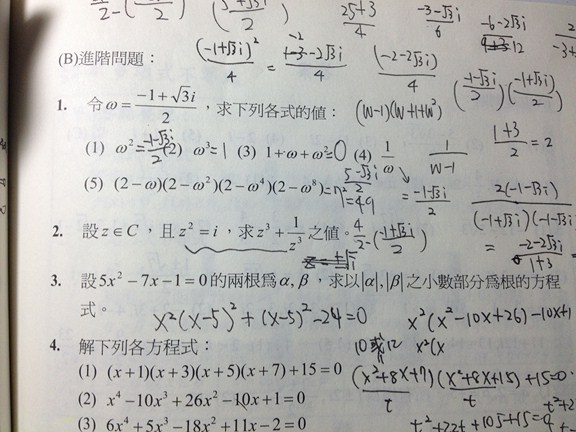 25+3
4
-3-√3i
6
-6-2√3i
12
(B)進階問題：
(-1+√3i)²
4
=
-2-2√3i
4
(-2-2√3i)
4
(-1-√3i)
2
(-1+√3i)
2
1. 令ω=(-1+√3i)/2，求下列各式的值：
(W-1)(W+1+W²)
(1) ω²=(-1-√3i)/2 (2) ω³=1 (3) 1+ω+ω²=0 (4) 1/ω
1/(W-1)
(1+3)/2=2
(5) (2-ω)(2-ω²)(2-ω⁴)(2-ω⁸)=7²=49
(5-√3i)/2
=(-1-√3i)/2
2(-1-√3i)
(-1+√3i)(-1-√3i)
=(-2-2√3i)/(1+3)
2. 設z∈C，且z²=i，求z³+1/z³之值。
4/2-(-1+√3i)/2
3. 設5x²-7x-1=0的兩根為α,β，求以|α|,|β|之小數部分為根的方程
式。
x²(x-5)²+(x-5)²-24=0
x²(x²-10x+26)-10x+1
4. 解下列各方程式：
10或12
x²(x
(1) (x+1)(x+3)(x+5)(x+7)+15=0
(x²+8x+7)(x²+8x+15)+15=0
t
t
(2) x⁴-10x³+26x²-10x+1=0
(3) 6x⁴+5x³-18x²+11x-2=0
t²+22t+105+15=0